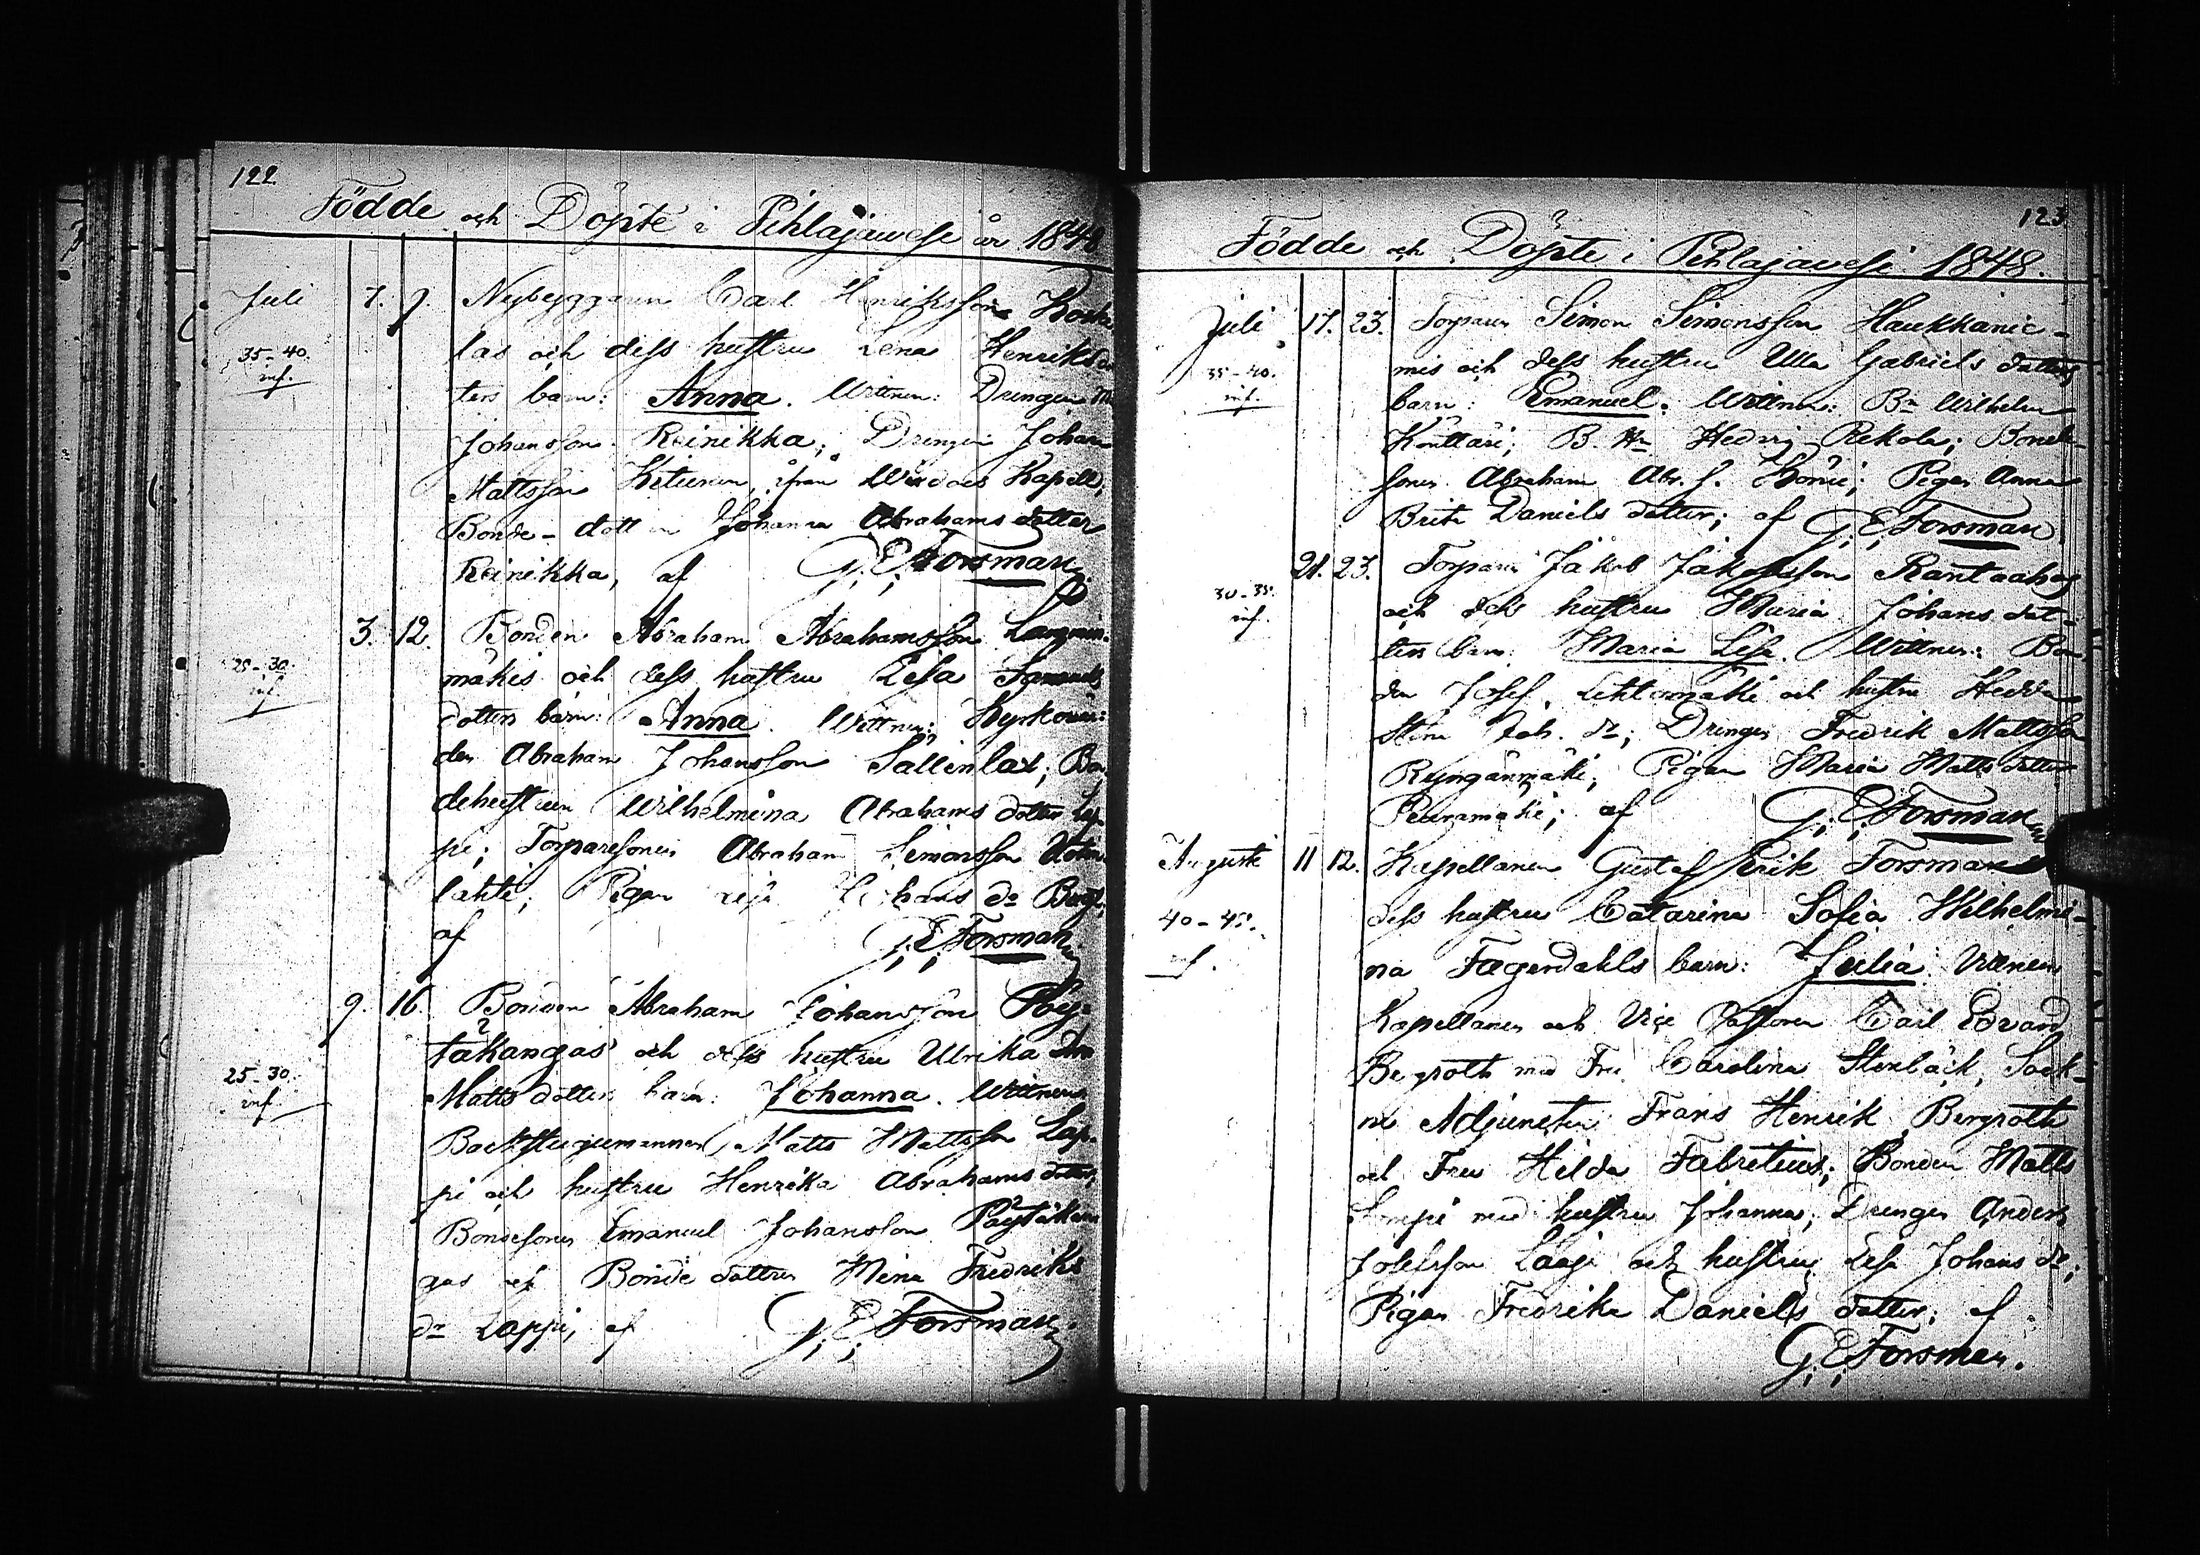 122
Födde och Döpte i Pihlajawesi år 1848
Juli 7. 9. Nybyggaren Carl Henriksson Koske
35-40. las och dess hustru Lena Henriksdo
inf. ters barn: Anna. Wittnen: Drengen
Johansson Reinikka; Drengen Johan
Mattsson Kiturin, ifrån Wirdois Kapell;
Bonde-dottren Johanna Abrahams dotter
Reinikka, af G. E. Forsman
3. 12. Bonden Abraham Abrahamsson Langmin-
25-30. mäkis och dess hustru Lisa Samuels
inf. dotters barn: Anna. Wittnen: Kyrkovär-
den Abraham Johansson Sällinlax; Bon-
dehustrun Wilhelmina Abrahams dotter Lap-
pi; Torparesonen Abraham Simonsson
lahti; Pigan Johans dr
af G. E. Forsman.
9. 16. Bonden Abraham Johansson Pöy-
täkangas och dess hustru Ulrika
25-30. Matts dotters barn: Johanna. Wittnen:
inf.
Backstugumannen Matts Mattsson Lap-
pi och hustru Henrika Abrahams dotter,
Bondesonen Emanuel Johansson Pöytäkan
gas och Bonde dottren Mina Fredriks
dr Lappi, af G. E. Forsman.
123.
Födde och Döpte i Pihlajawesi 1848.
Juli 17. 23. Torparen Simon Simonsson Haukkanie-
35-40. mis och dess hustru Ulla Gabriels dotters
inf. barn: Emanuel. Wittnen: Bn Wilhelm
Könttäri; B. Hn Hedvig Rekola; Bonde-
sonen Abraham Abr. s. Könni; Pigan Anna
Brita Daniels dotter; af G. E. Forsman
21. 23. Torparen Jakob Jakobsson Rantaahos
30-35. och dess hustru Maria Johans dot-
inf. ters barn: Maria Lisa. Wittnen: Bon
den Josef Lehtomäki och hustru Hedda
Stina Joh. dr; Drengen Fredrik Mattsson
Ryöngänmäki; Pigan Maria Matts dotter
Peuramäki; af G. E. Forsman
Augusti 11 12. Kapellanen Gustaf Erik Forsmans
40-45. dess hustru Catarina Sofia Wilhelmi-
inf. na Fagerdahls barn: Julia. Vittnen
Kapellanen och Vice Pastoren Carl Edvard
Bergroth med Fru Carolina Stenbäck, Sock-
ne Adjuncten Frans Henrik Bergroth
och Fru Hilda Fabritius; Bonden Matts
Lampi med hustru Johanna; Drengen Anders
Josefsson Laaja och hustru Lisa Johans dr;
Pigan Fredrika Daniels dotter; af
G. E. Forsman.